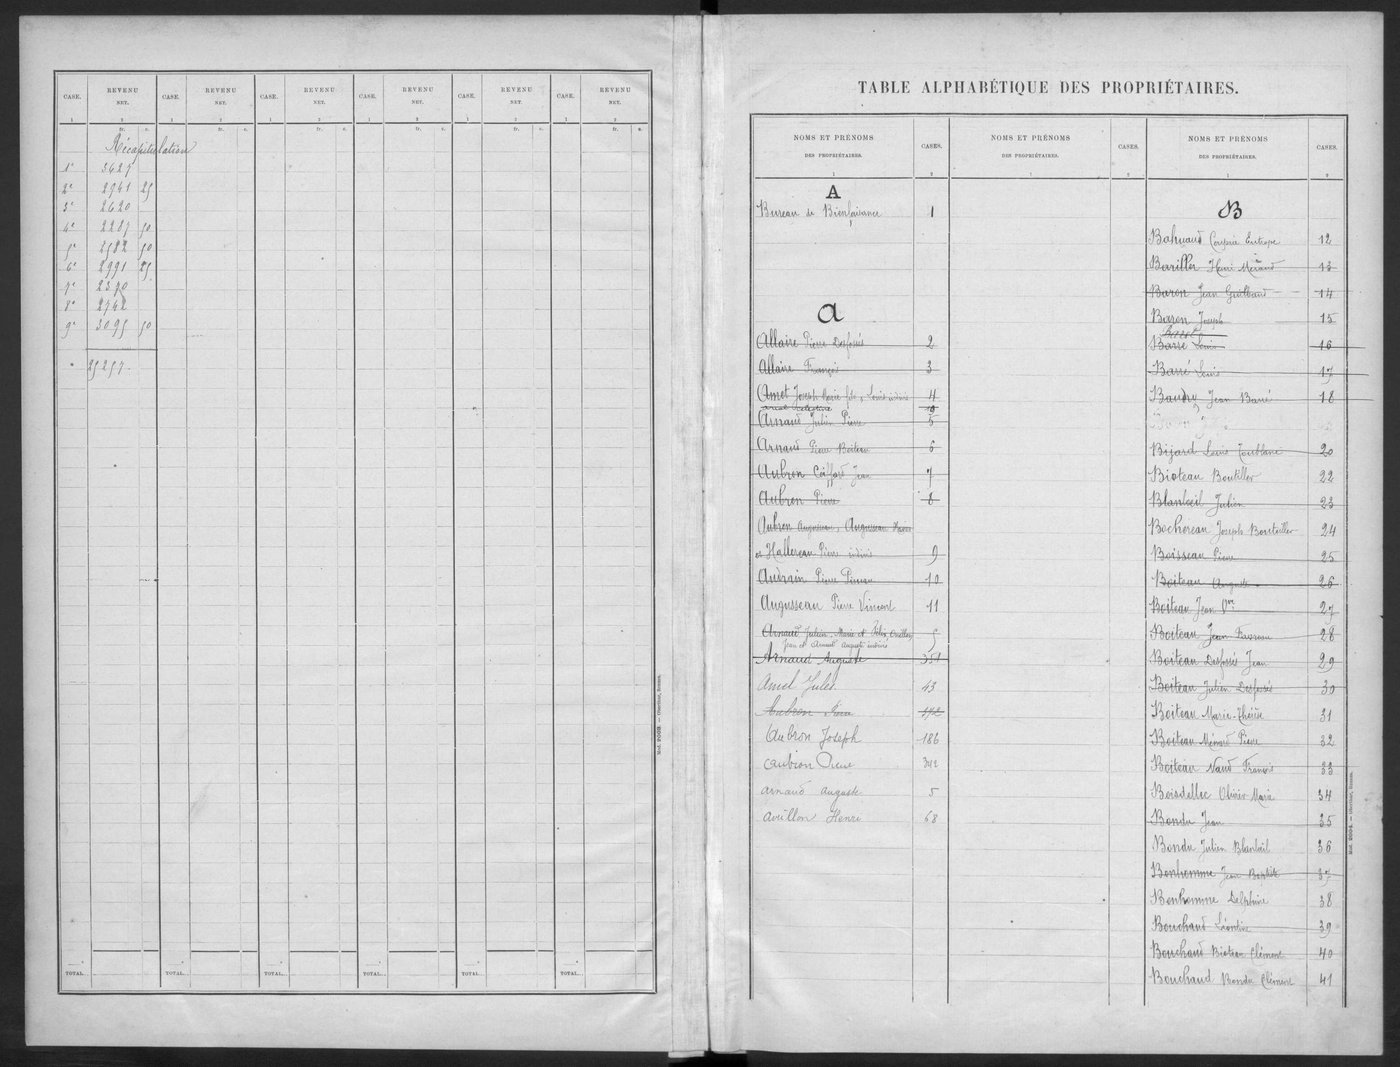 CASE. REVENU NET. CASE. REVENU NET. CASE. REVENU NET. CASE. REVENU NET. CASE. REVENU NET. CASE. REVENU NET.
1 2 1 2 1 2 1 2 1 2 1 2
fr. c. fr. c. fr. c. fr. c. fr. c. fr. c.
Récapitulation
1e 3627
2e 2941 25
3e 2620
4e 2287 50
5e 2582 50
6e 2991 25
7e 2370
8e 2742
9e 3095 50
25257
TOTAL. TOTAL. TOTAL. TOTAL. TOTAL. TOTAL.
Mod. 2003. — Oberthur, Rennes.
TABLE ALPHABÉTIQUE DES PROPRIÉTAIRES.
NOMS ET PRÉNOMS DES PROPRIÉTAIRES. CASES.
1 2
A
Bureau de Bienfaisance 1
A
Allaire Pierre Desfossés 2
Allaire François 3
Amet Joseph Marie fils, Louis indivis 4
Arnaud Julien Pierre 5
Arnaud Pierre Boiteau 6
Aubron Coiffard Jean 7
Aubron Pierre 8
Aubron Augusseau, Augusseau
et Hallereau Pierre indivis 9
Audrain Pierre Pineau 10
Augusseau Pierre Vincent 11
Arnaud Julien, Marie et Félix Ouillon 5
Jean et Arnaud Auguste indivis
Arnaud Auguste 351
Amel Jules 43
Aubron Pierre 172
Aubron Joseph 186
Aubron Pierre 342
Arnaud Auguste 5
Avrillon Henri 68
NOMS ET PRÉNOMS DES PROPRIÉTAIRES. CASES.
1 2
NOMS ET PRÉNOMS DES PROPRIÉTAIRES. CASES.
1 2
B
Bahuaud Couprie Eutrope 12
Bariller Henri Méraud 13
Baron Jean Guilbaud 14
Baron Joseph 15
Barré Louis 16
Barré Louis 17
Baudry Jean Barré 18
Bijard Louis Toublanc 20
Bioteau Boutiller 22
Blanloeil Julien 23
Bochereau Joseph Bouteiller 24
Boisseau Pierre 25
Boiteau Auguste 26
Boiteau Jean Vve 27
Boiteau Jean Favreau 28
Boiteau Desfossés Jean 29
Boiteau Julien Desfossés 30
Boiteau Marie-Thérèse 31
Boiteau Ménard Pierre 32
Boiteau Naud François 33
Boisdellec Olivier Marie 34
Bondu Jean 35
Bondu Julien Blanloeil 36
Bonhomme Jean Baptiste 37
Bonhomme Delphine 38
Bouchaud Léontine 39
Bouchaud Bioteau Clément 40
Bouchaud Bondu Clément 41
Mod. 2004. — Oberthur, Rennes.